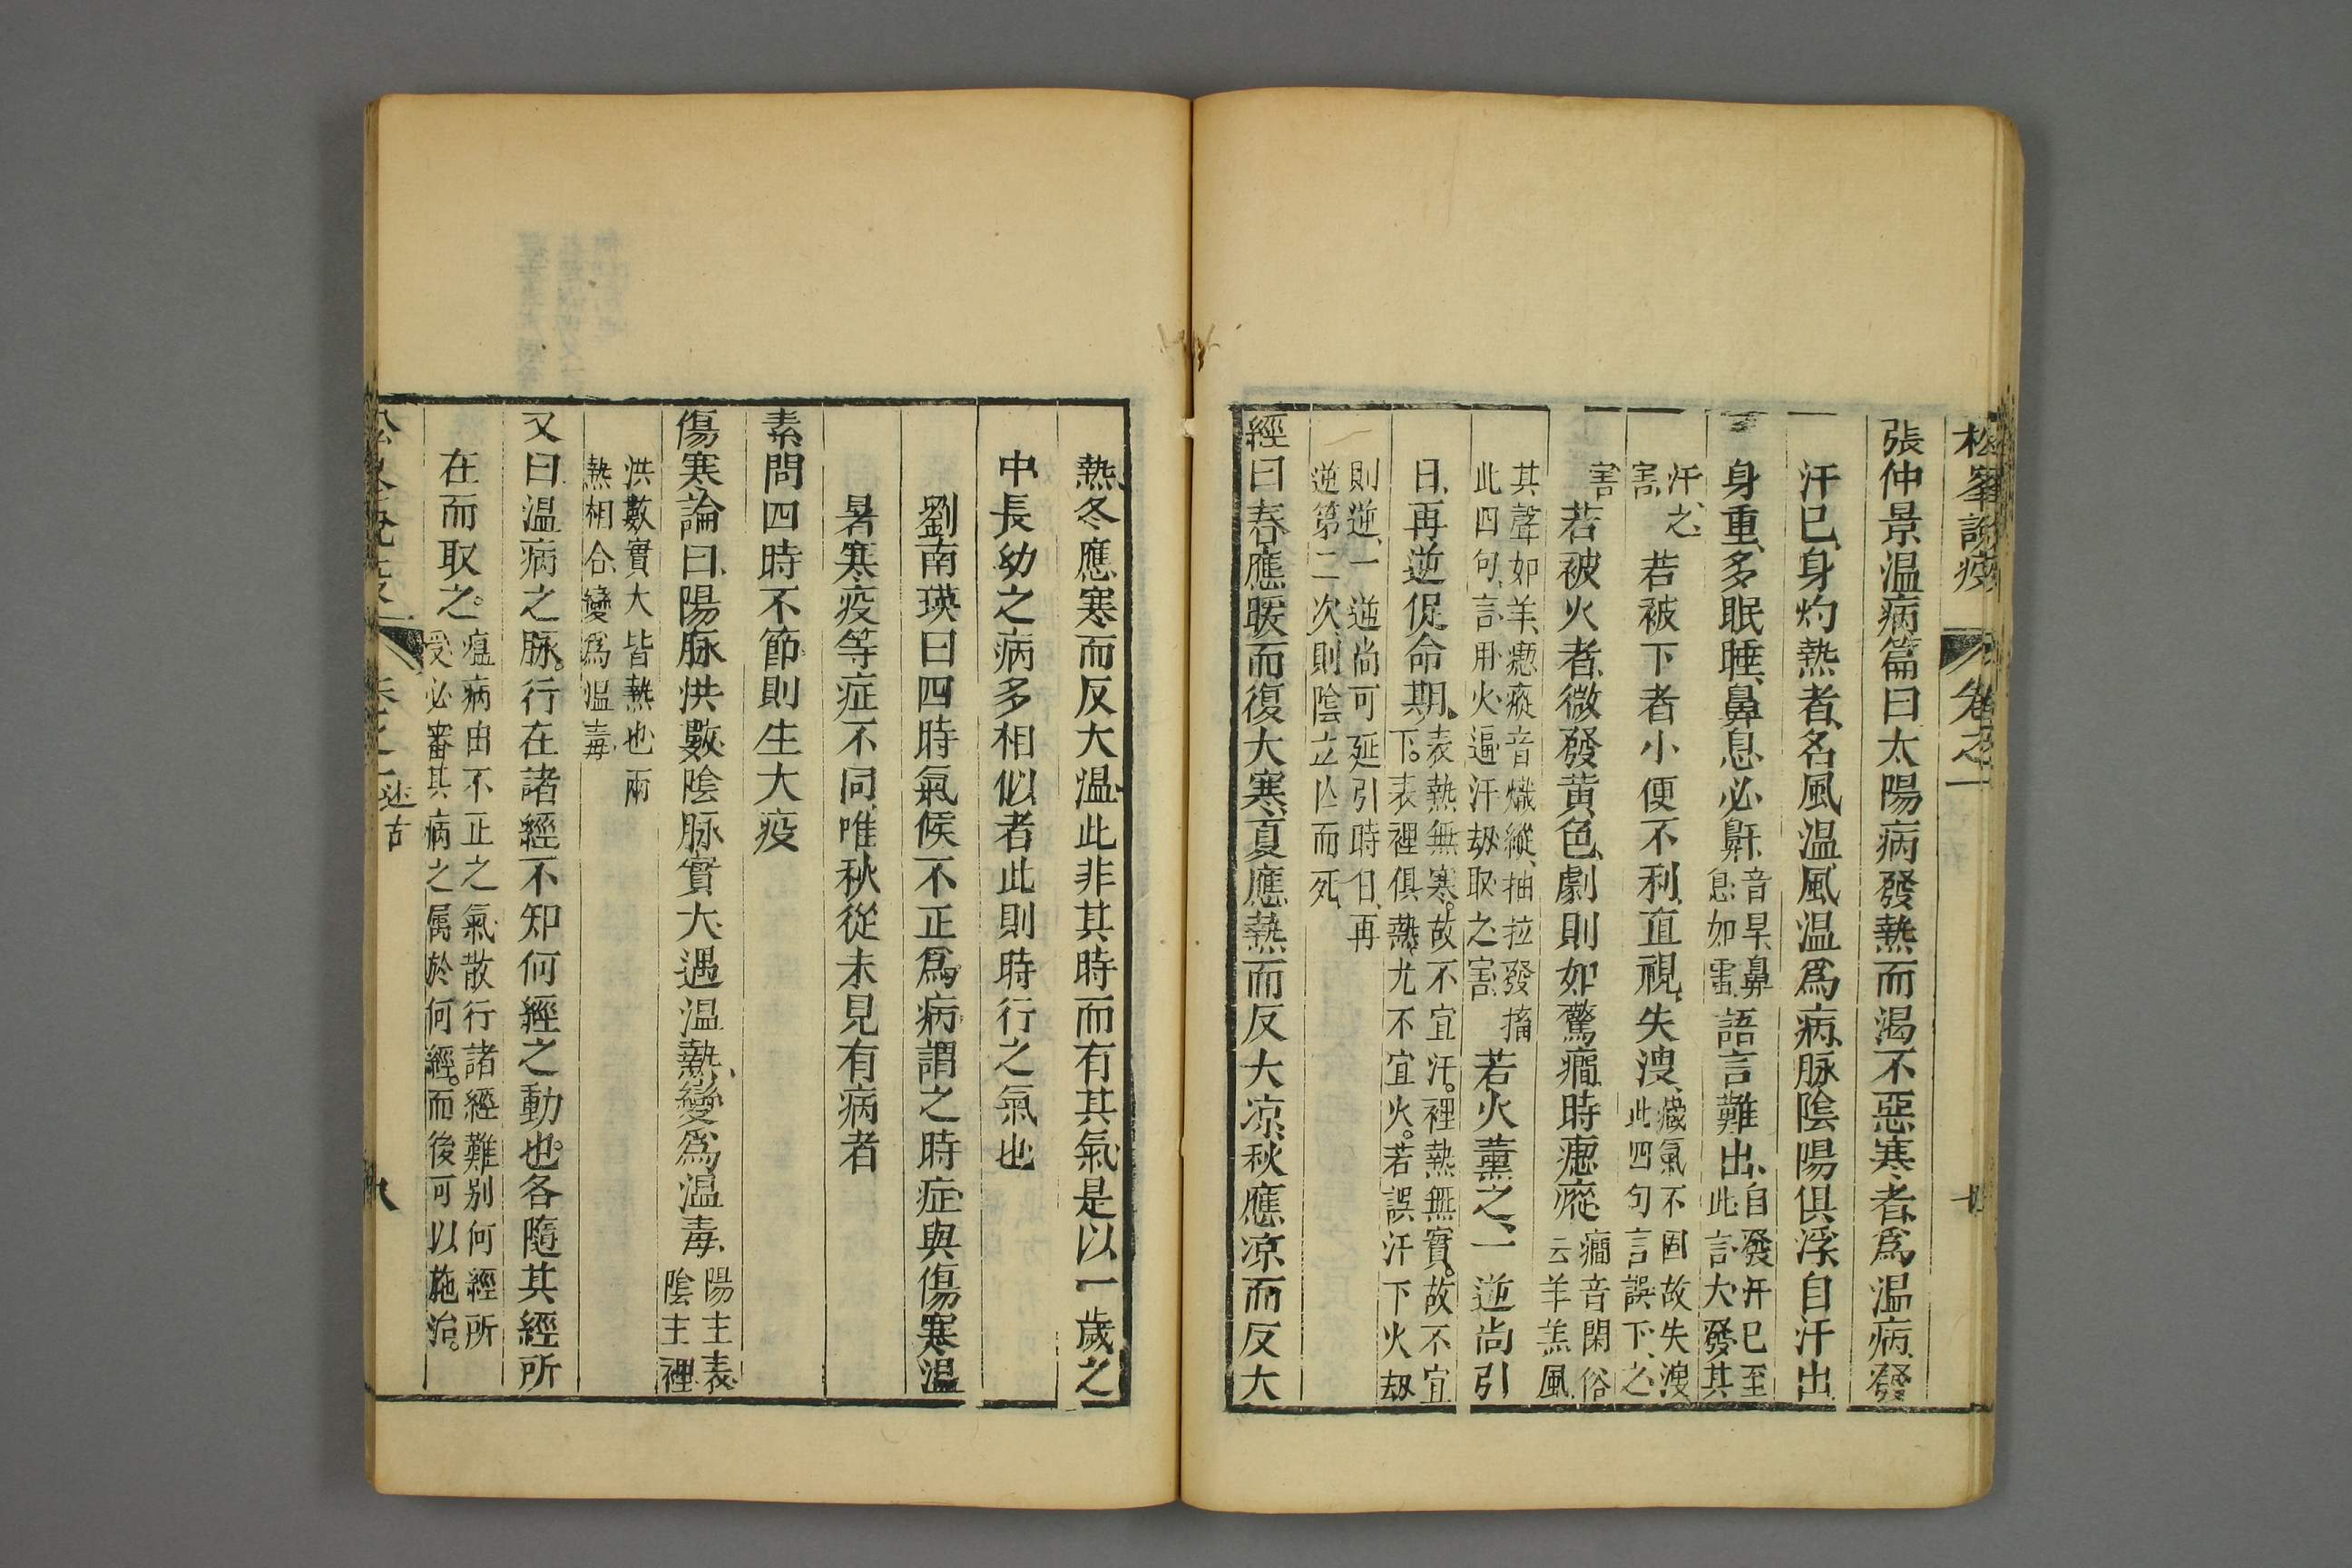 松峯說疫 卷之一
張仲景温病篇曰太陽病發熱而渴不惡寒者爲温病發
汗已身灼熱者名風温風温爲病脉陰陽俱浮自汗出
身重多眠睡鼻息必鼾音旱鼻息如雷語言難出自發汗已至此言大發其
汗之害若被下者小便不利直視失溲藏氣不固故失溲此四句言誤下之
害若被火者微發黄色劇則如驚癎時瘛瘲癎音閑俗云羊羔風
其聲如羊瘛瘲音熾縱抽拉發搐此四句言用火逼汗刼取之害若火薰之一逆尚引
日再逆促命期表熱無寒故不宜汗裡熱無實故不宜下表裡俱熱尤不宜火若誤汗下火刼
則逆一逆尚可延引時日再逆第二次則陰立亾而死
經曰春應暖而復大寒夏應熱而反大凉秋應凉而反大
熱冬應寒而反大温此非其時而有其氣是以一歲之
中長幼之病多相似者此則時行之氣也
劉南瑛曰四時氣候不正爲病謂之時症與傷寒温
暑寒疫等症不同唯秋從未見有病者
素問四時不節則生大疫
傷寒論曰陽脉洪數陰脉實大遇温熱變爲温毒陽主表陰主裡
洪數實大皆熱也兩熱相合變爲温毒
又曰温病之脉行在諸經不知何經之動也各隨其經所
在而取之瘟病由不正之氣散行諸經難别何經所受必審其病之属於何經而後可以施治
卷之一 述古 八